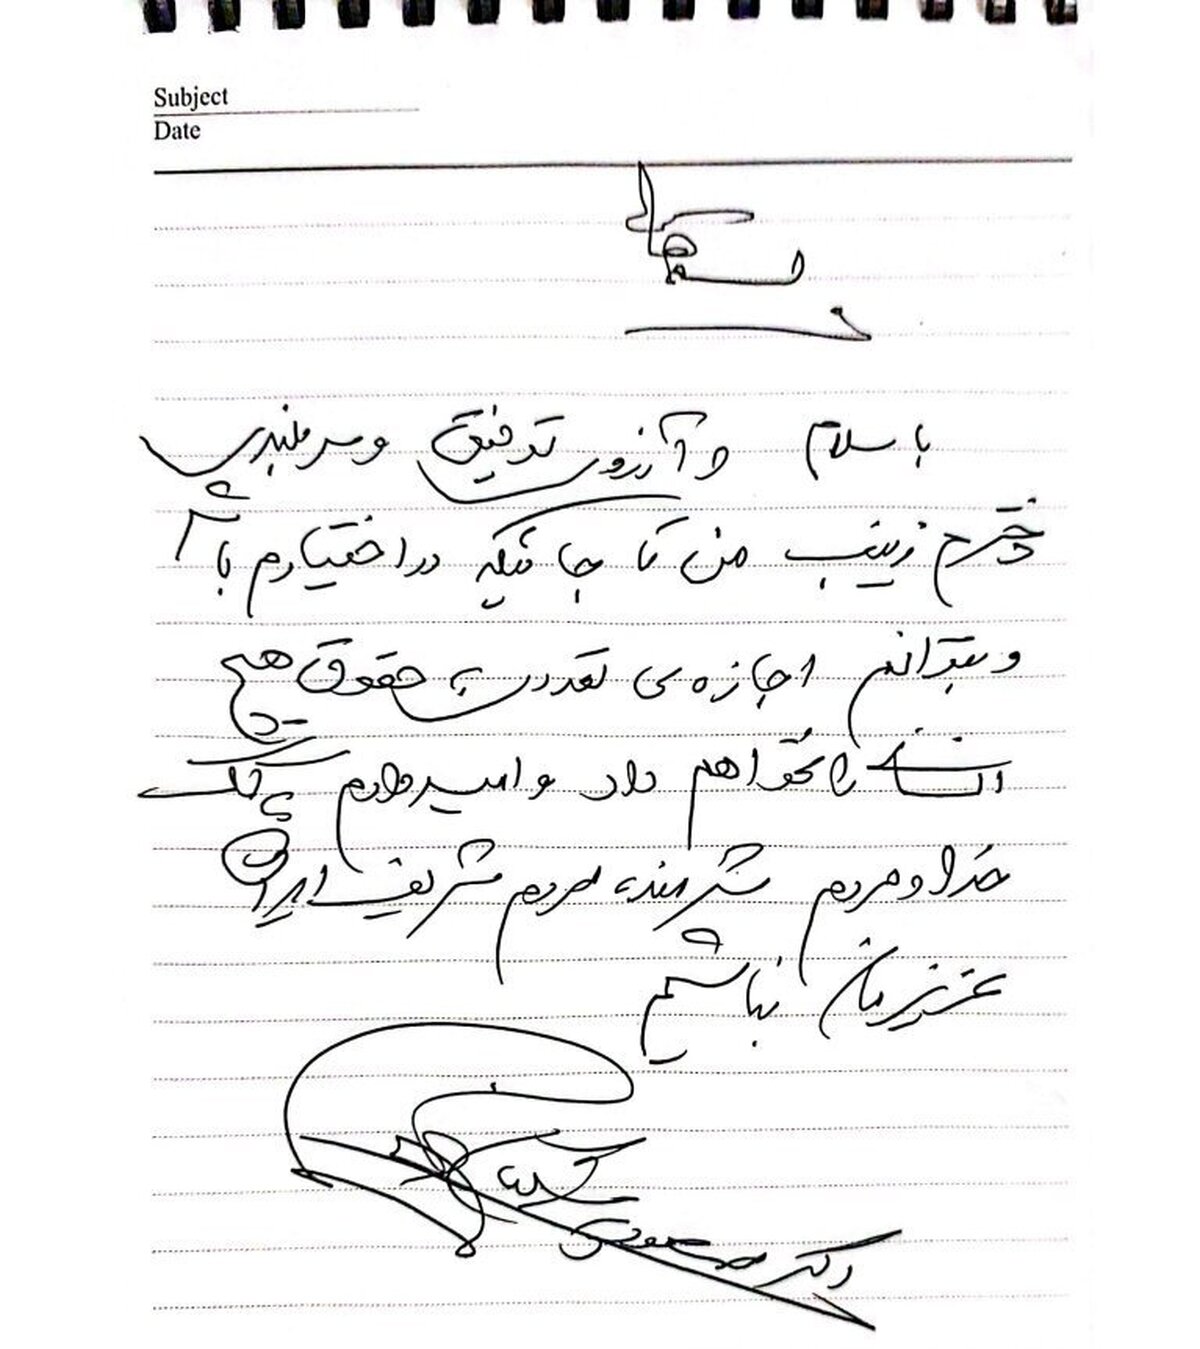 Subject
Date
با سلام و آرزوی توفیق و سربلندی
دخترم زینب من تا جائیکه در اختیارم باشد
و بتوانم اجازه‌ی تعدی به حقوق هیچ
انسانی را نخواهم داد و امیدوارم به کمک
خدا و مردم شرمنده مردم شریف ایران
عزیزمان نباشیم
دکتر مسعود پزشکیان